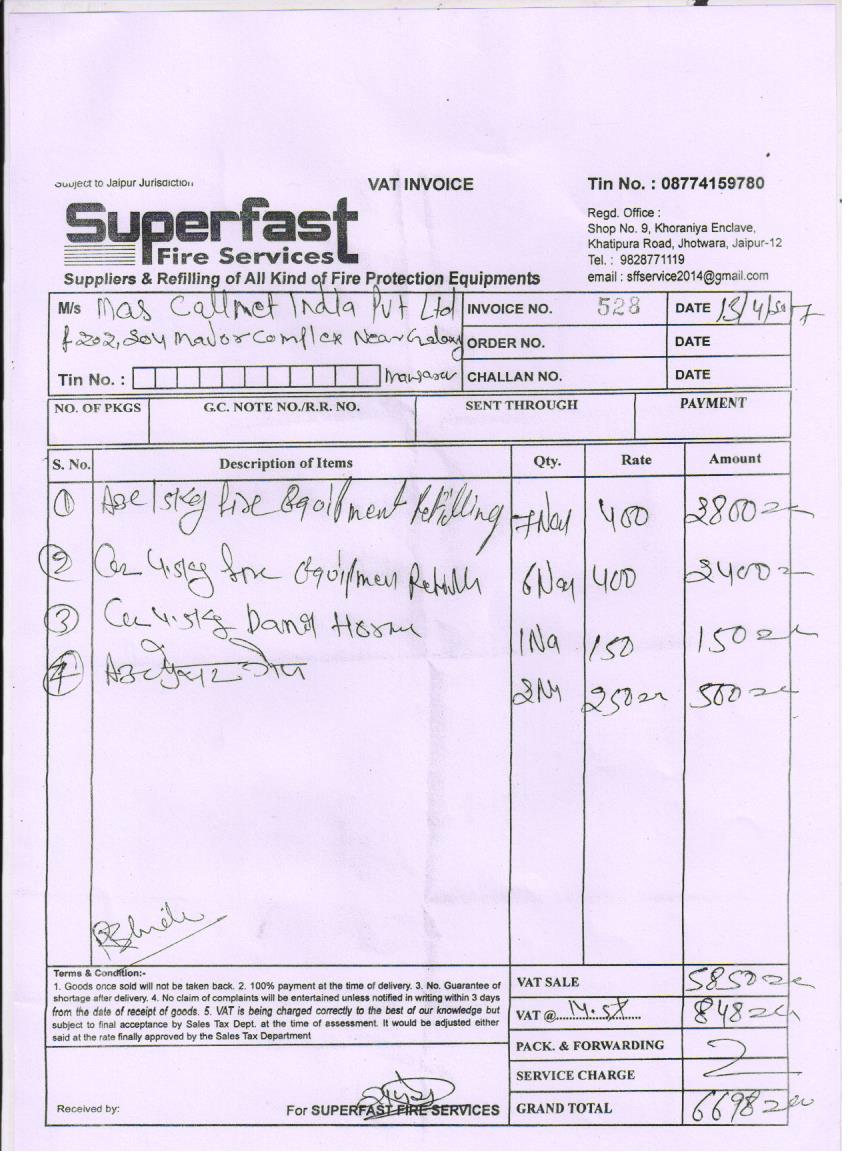 Subject to Jaipur Jurisdiction
VAT INVOICE
Tin No. : 08774159780
Superfast
Fire Services
Suppliers & Refilling of All Kind of Fire Protection Equipments
Regd. Office :
Shop No. 9, Khoraniya Enclave,
Khatipura Road, Jhotwara, Jaipur-12
Tel. : 9828771119
email : sffservice2014@gmail.com
M/s Mas Callnet India Pvt Ltd
INVOICE NO. 528 DATE
Complex Near
ORDER NO. DATE
Tin No. :
CHALLAN NO. DATE
NO. OF PKGS G.C. NOTE NO./R.R. NO. SENT THROUGH PAYMENT
S. No. Description of Items Qty. Rate Amount
1 fire Refilling 400
2 4.5kg 400
3 4.5kg 150 150
4 250 500
Terms & Condition:-
1. Goods once sold will not be taken back. 2. 100% payment at the time of delivery. 3. No. Guarantee of
shortage after delivery. 4. No claim of complaints will be entertained unless notified in writing within 3 days
from the date of receipt of goods. 5. VAT is being charged correctly to the best of our knowledge but
subject to final acceptance by Sales Tax Dept. at the time of assessment. It would be adjusted either
said at the rate finally approved by the Sales Tax Department
VAT SALE 5850
VAT @ 14.5% 848
PACK. & FORWARDING
SERVICE CHARGE
GRAND TOTAL 6698
Received by:
For SUPERFAST FIRE SERVICES